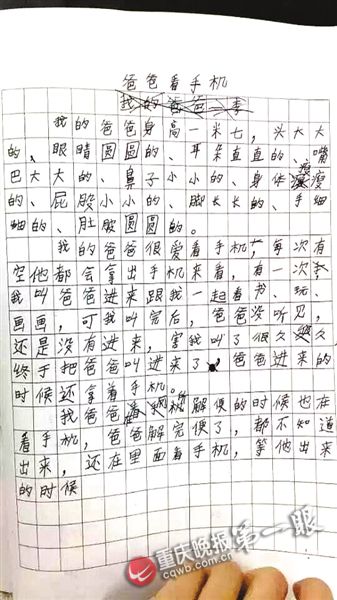 爸爸看手机
我的爸爸身高一米七，头大大
的、眼睛圆圆的、耳朵直直的、嘴
巴大大的、鼻子小小的、身体瘦瘦
的、屁股小小的、脚长长的、手细
细的、肚股圆圆的。
我的爸爸很爱看手机，每次有
空他都会拿出手机来看，有一次，
我叫爸爸进来跟我一起看书、玩、
画画，可我叫完后，爸爸没听见，
还是没有进来，害我叫了很久久
终于把爸爸叫进来了，爸爸进来的
时候还拿着手机。
我爸爸解便的时候也在
看手机，爸爸解完便了，都不知道
出来，还在里面看手机，等他出来
的时候
重庆晚报第一眼
cqwb.com.cn